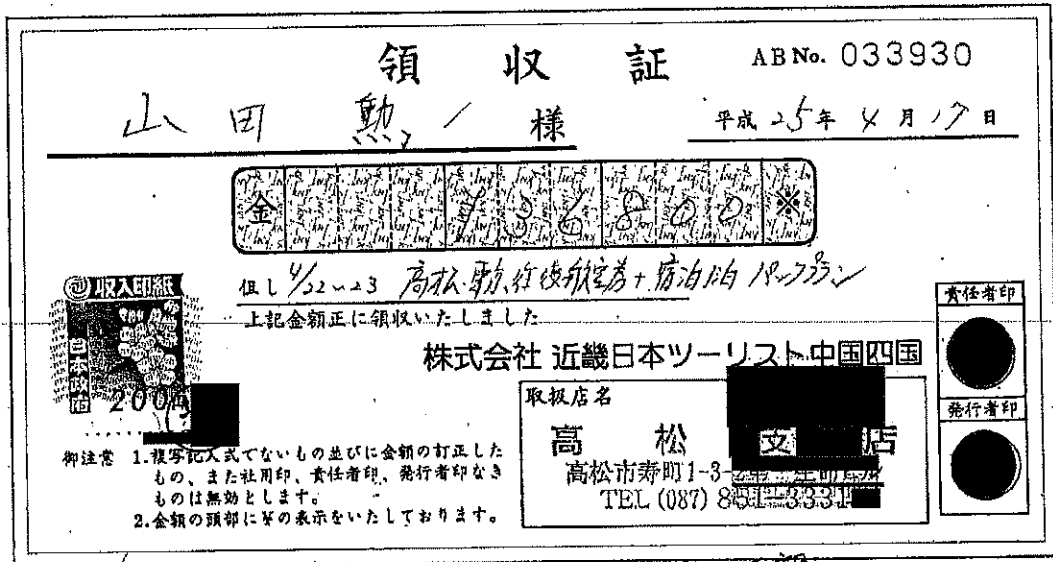 領収証
AB No. 033930
山田 勲 様
平成 25年 4月 17日
金 ¥36800 ※
但し 4/22～23 高松 東京 往復航空券+宿泊1泊 パックプラン
上記金額正に領収いたしました
収入印紙
日本政府
200円
株式会社 近畿日本ツーリスト中国四国
責任者印
発行者印
取扱店名
高松支店
高松市寿町1-3-2
TEL (087) 851-3331
御注意 1.複写記入式でないもの並びに金額の訂正した
もの、また社用印、責任者印、発行者印なき
ものは無効とします。
2.金額の頭部に¥の表示をいたしております。